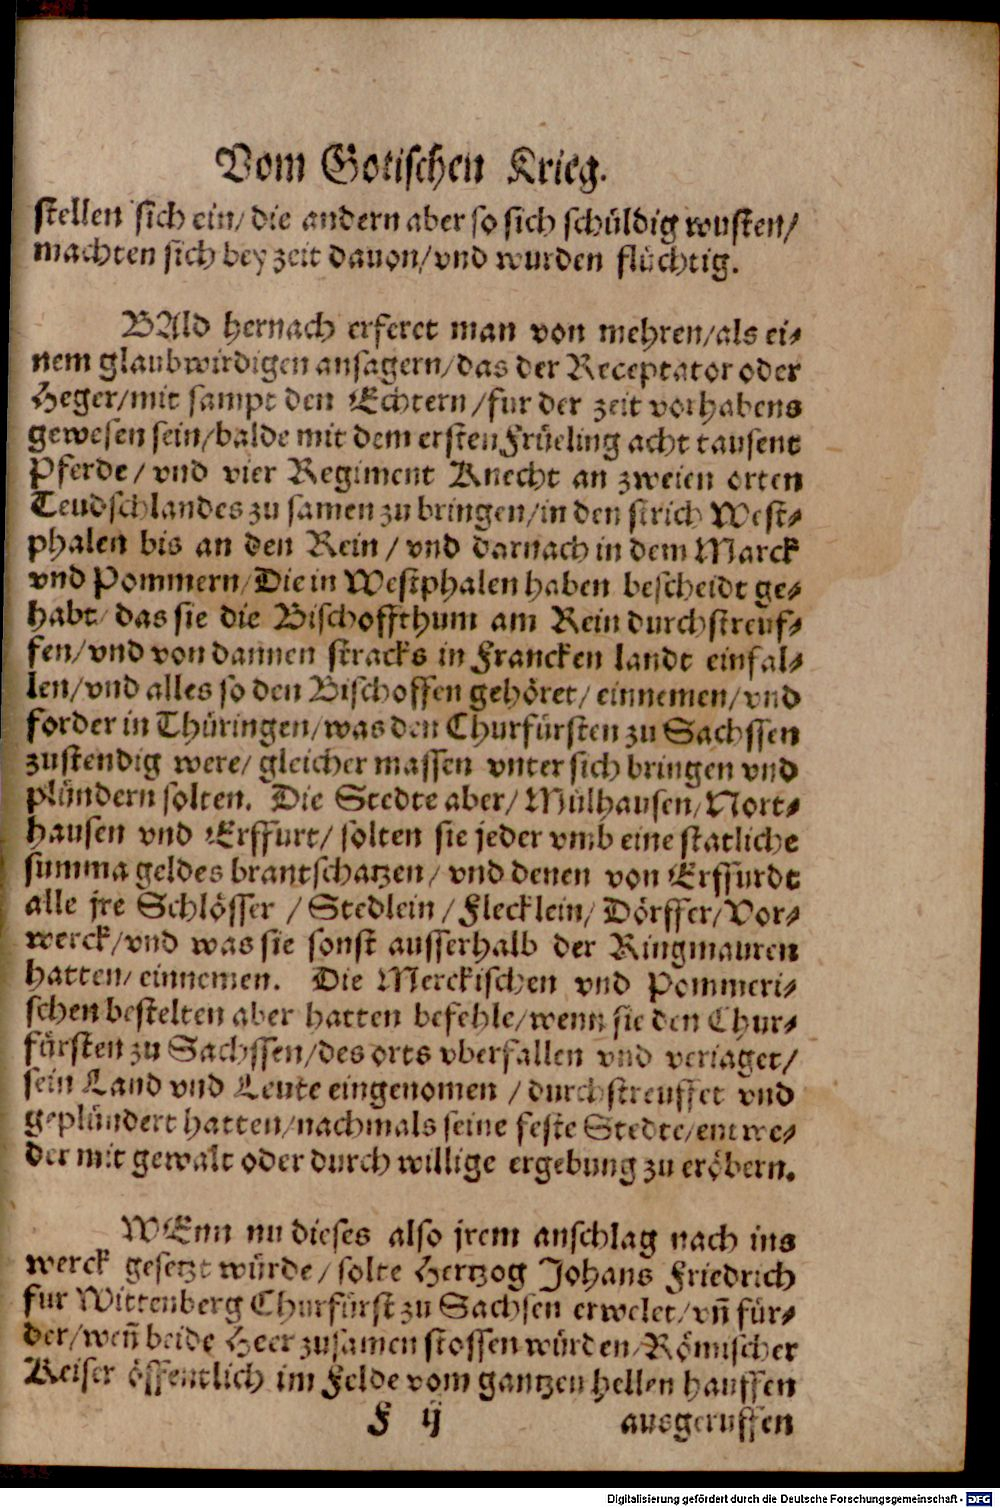 Vom Gotischen Krieg.
stellen sich ein/ die andern aber so sich schüldig wusten/
machten sich bey zeit dauon/ vnd wurden flüchtig.
BAld hernach erferet man von mehren/ als ei-
nem glaubwirdigen ansagern/ das der Receptator oder
Heger/ mit sampt den Echtern/ fur der zeit vorhabens
gewesen sein/ balde mit dem ersten Früeling acht tausent
Pferde/ vnd vier Regiment Knecht an zweien orten
Teudschlandes zu samen zu bringen/ in den strich West-
phalen bis an den Rein/ vnd darnach in dem Marck
vnd Pommern/ Die in Westphalen haben bescheidt ge-
habt/ das sie die Bischoffthum am Rein durchstreuf-
fen/ vnd von dannen stracks in Francken landt einfal-
len/ vnd alles so den Bischoffen gehöret/ einnemen/ vnd
forder in Thüringen/ was den Churfürsten zu Sachssen
zustendig were/ gleicher massen vnter sich bringen vnd
plündern solten. Die Stedte aber/ Mülhausen/ Nort-
hausen vnd Erffurt/ solten sie jeder vmb eine statliche
summa geldes brantschatzen/ vnd denen von Erffurdt
alle jre Schlösser/ Stedlein/ Flecklein/ Dörffer/ Vor-
werck/ vnd was sie sonst ausserhalb der Ringmauren
hatten/ einnemen. Die Merckischen vnd Pommeri-
schen bestelten aber hatten befehle/ wenn sie den Chur-
fürsten zu Sachssen/ des orts vberfallen vnd veriaget/
sein Land vnd Leute eingenomen/ durchstreuffet vnd
geplündert hatten/ nachmals seine feste Stedte/ entwe-
der mit gewalt oder durch willige ergebung zu eröbern.
WEnn nu dieses also jrem anschlag nach ins
werck gesetzt würde/ solte Hertzog Johans Friedrich
fur Wittenberg Churfürst zu Sachsen erwelet/ vn̄ für-
der/ wen̄ beide Heer zusamen stossen würden/ Römischer
Keiser öffentlich im Felde vom gantzen hellen hauffen
F ij
ausgeruffen
Digitalisierung gefördert durch die Deutsche Forschungsgemeinschaft - DFG